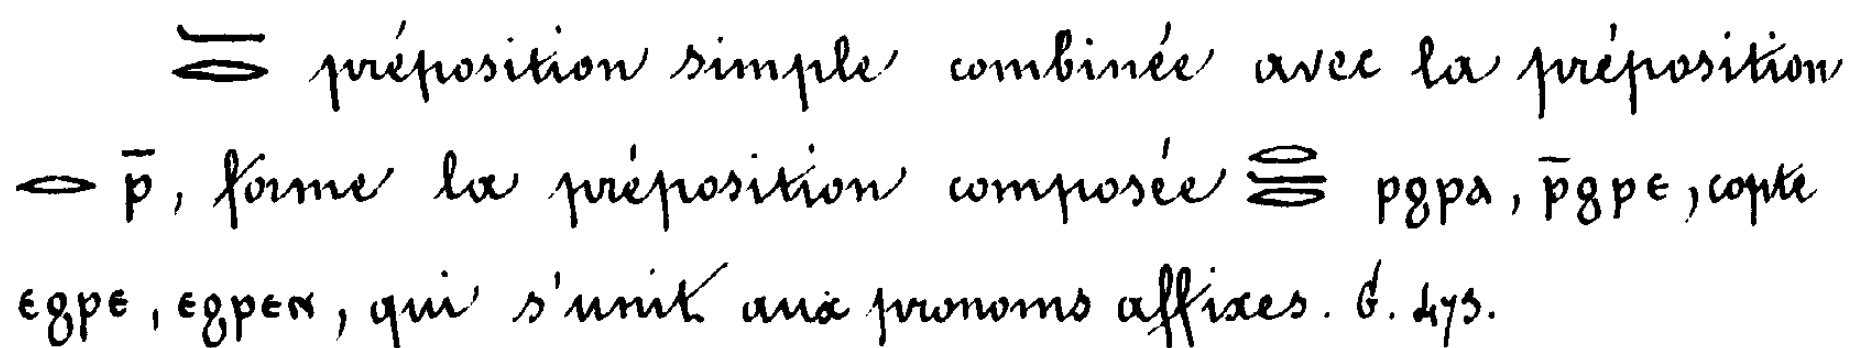 𓁷 préposition simple combinée avec la préposition
𓂋 ⲣ̄, forme la préposition composée ⲣϩⲣⲁ, ⲣ̄ϩⲣⲉ, copte
ⲉϩⲣⲉ, ⲉϩⲣⲉⲛ, qui s'unit aux pronoms affixes. G. 473.